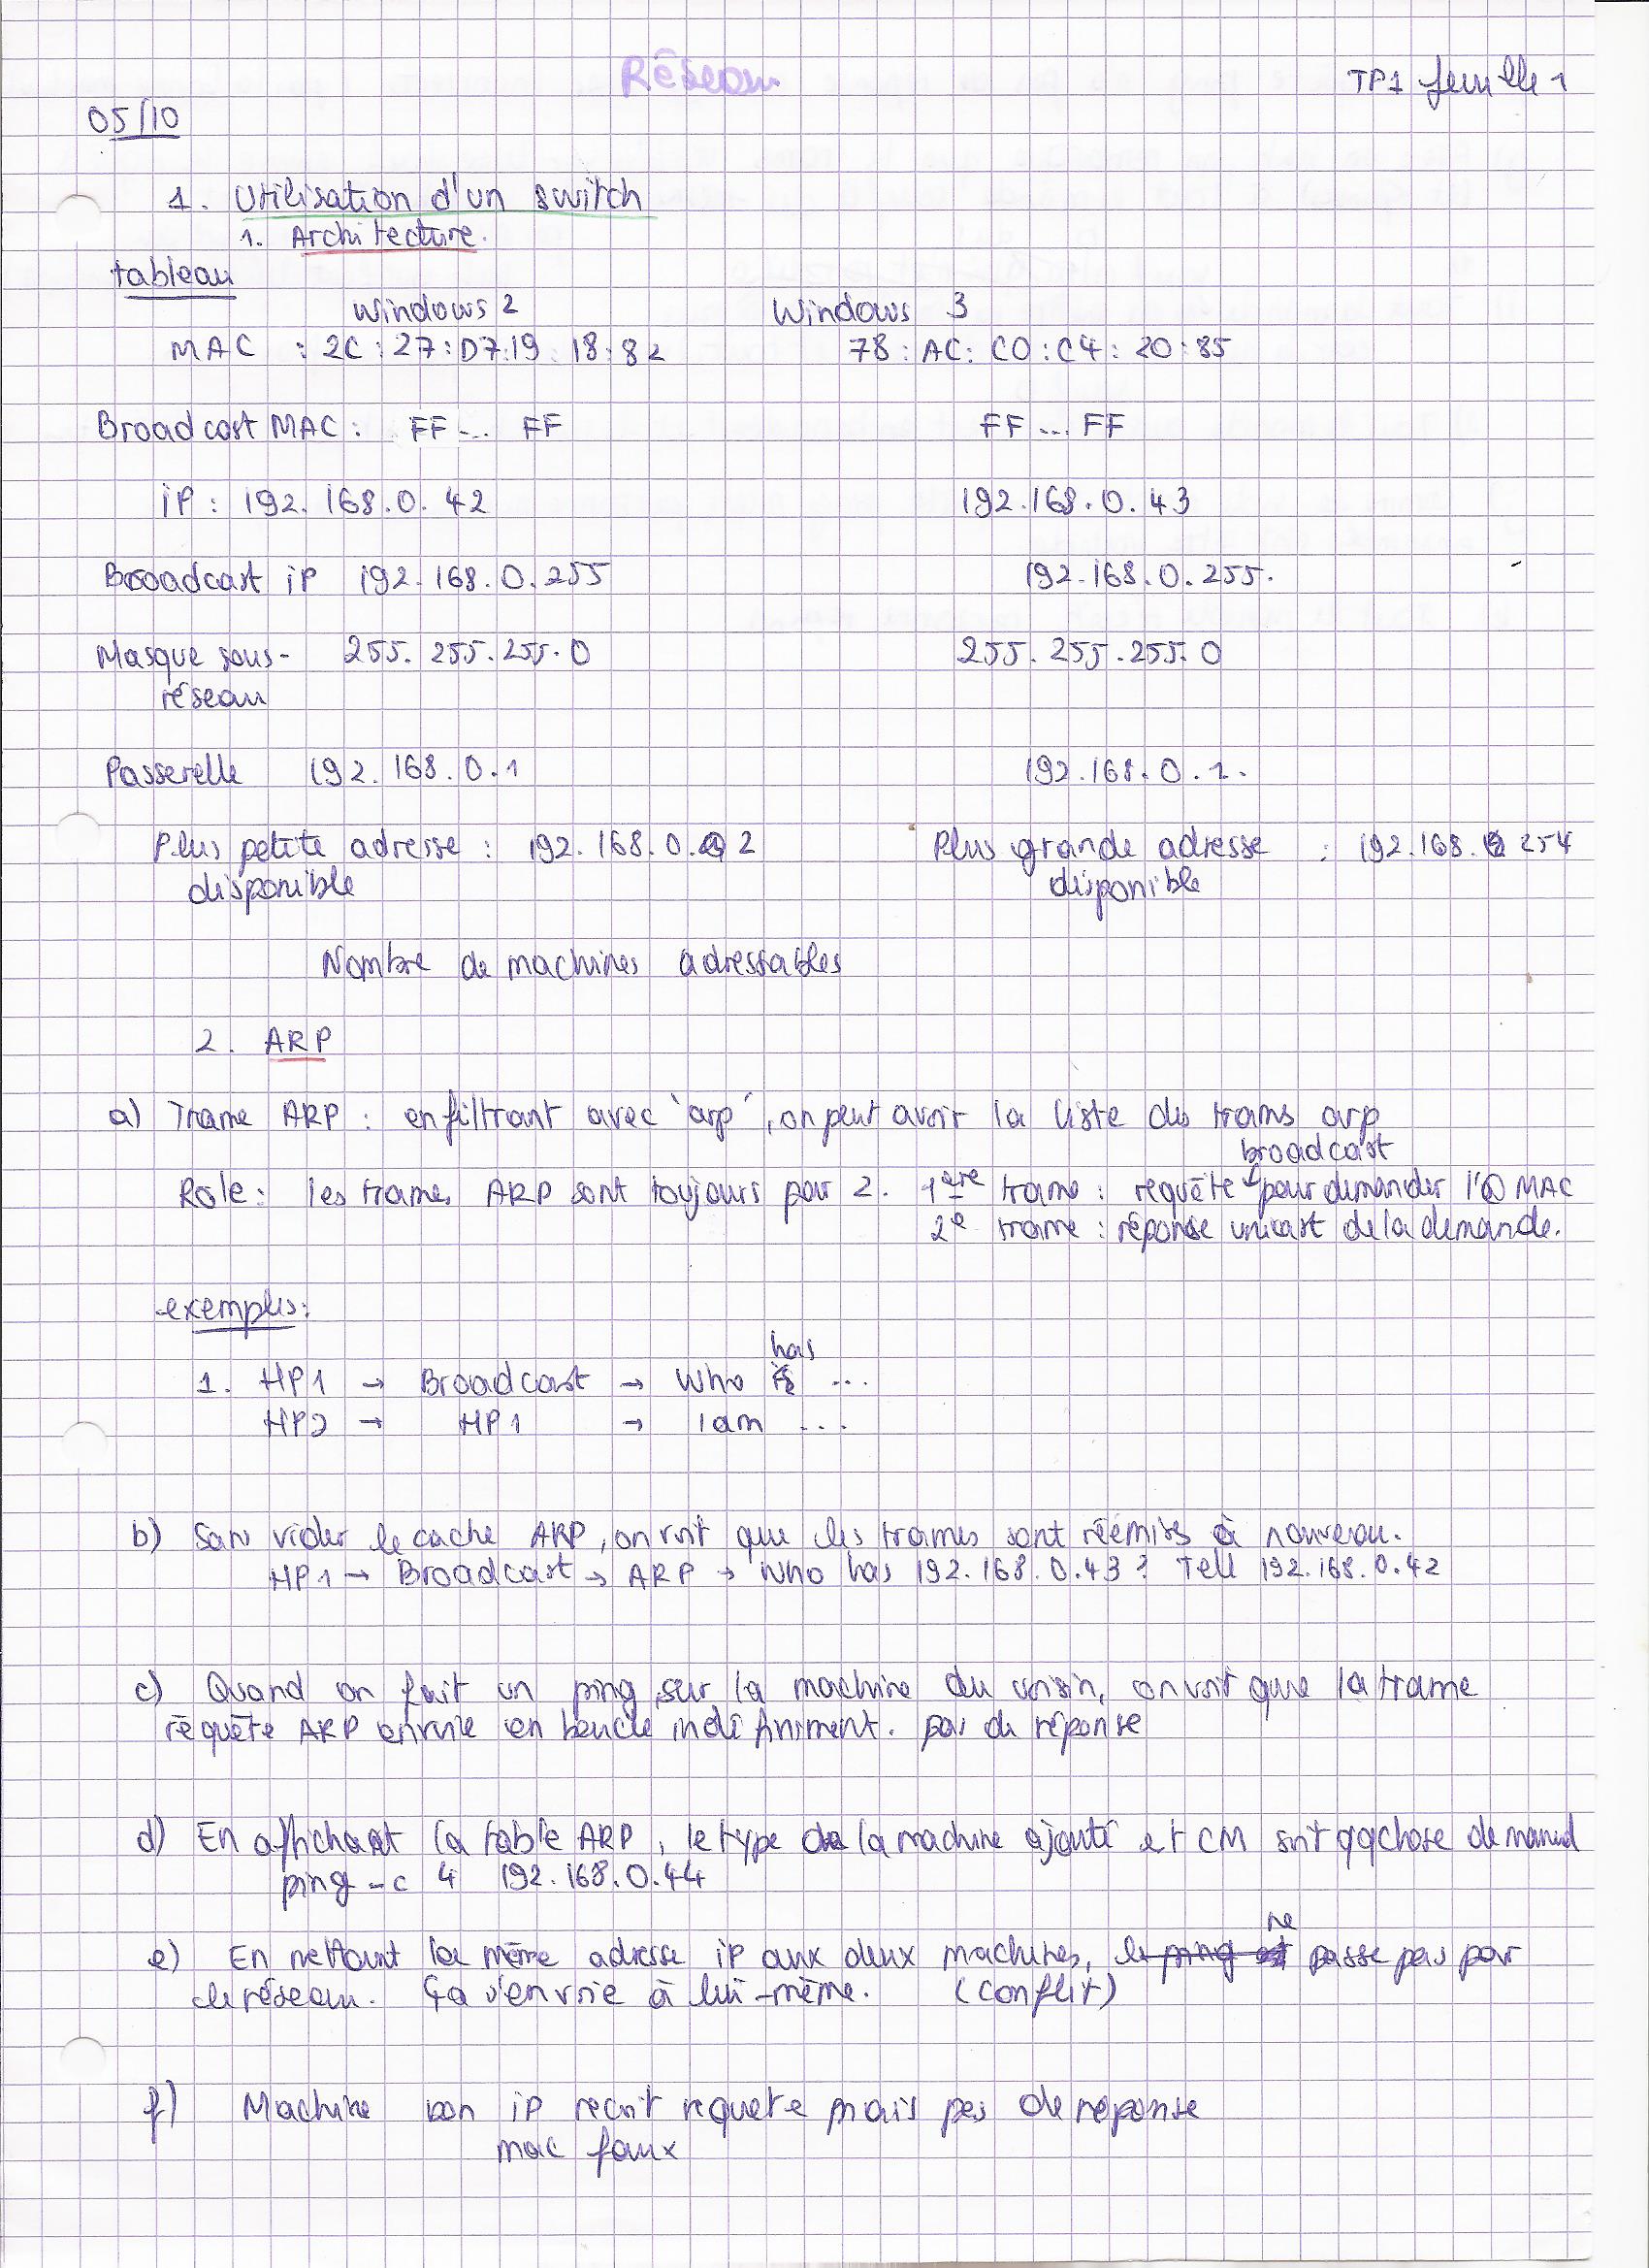 Réseau
TP1 feuille 1
05/10
1. Utilisation d'un switch
1. Architecture.
tableau
Windows 2 Windows 3
MAC : 2C : 27 : D7 : 19 : 18 : 82 78 : AC : C0 : C4 : 20 : 85
Broadcast MAC : FF ... FF FF ... FF
iP : 192.168.0.42 192.168.0.43
Brooadcast iP 192.168.0.255 192.168.0.255.
Masque sous- 255.255.255.0 255.255.255.0
réseau
Passerelle 192.168.0.1 192.168.0.1.
Plus petite adresse : 192.168.0. 2 Plus grande adresse : 192.168. 254
disponible disponible
Nombre de machines adressables
2. ARP
a) Trame ARP : en filtrant avec "arp", on peut avoir la liste des trams arp
broadcast
Role : les trames ARP sont toujours par 2. 1ère trame : requête pour demander l'@ MAC
2e trame : réponse unicast de la demande.
exemples :
has
1. HP1 → Broadcast → Who is ...
HP2 → HP1 → I am ...
b) Sans vider le cache ARP, on voit que les trames sont réémises à nouveau.
HP1 → Broadcast → ARP → Who has 192.168.0.43 ? Tell 192.168.0.42
c) Quand on fait un ping sur la machine du voisin, on voit que la trame
requête ARP envoie en boucle indéfiniment. pas de réponse
d) En affichant la table ARP, le type de la machine ajouté et CM soit qqchose de manuel
ping -c 4 192.168.0.44
ne
e) En mettant la même adresse iP aux deux machines, le ping passe pas par
le réseau. Ça s'envoie à lui-même. (conflit)
f) Machine bon iP recoit requete mais pas de réponse
mac faux